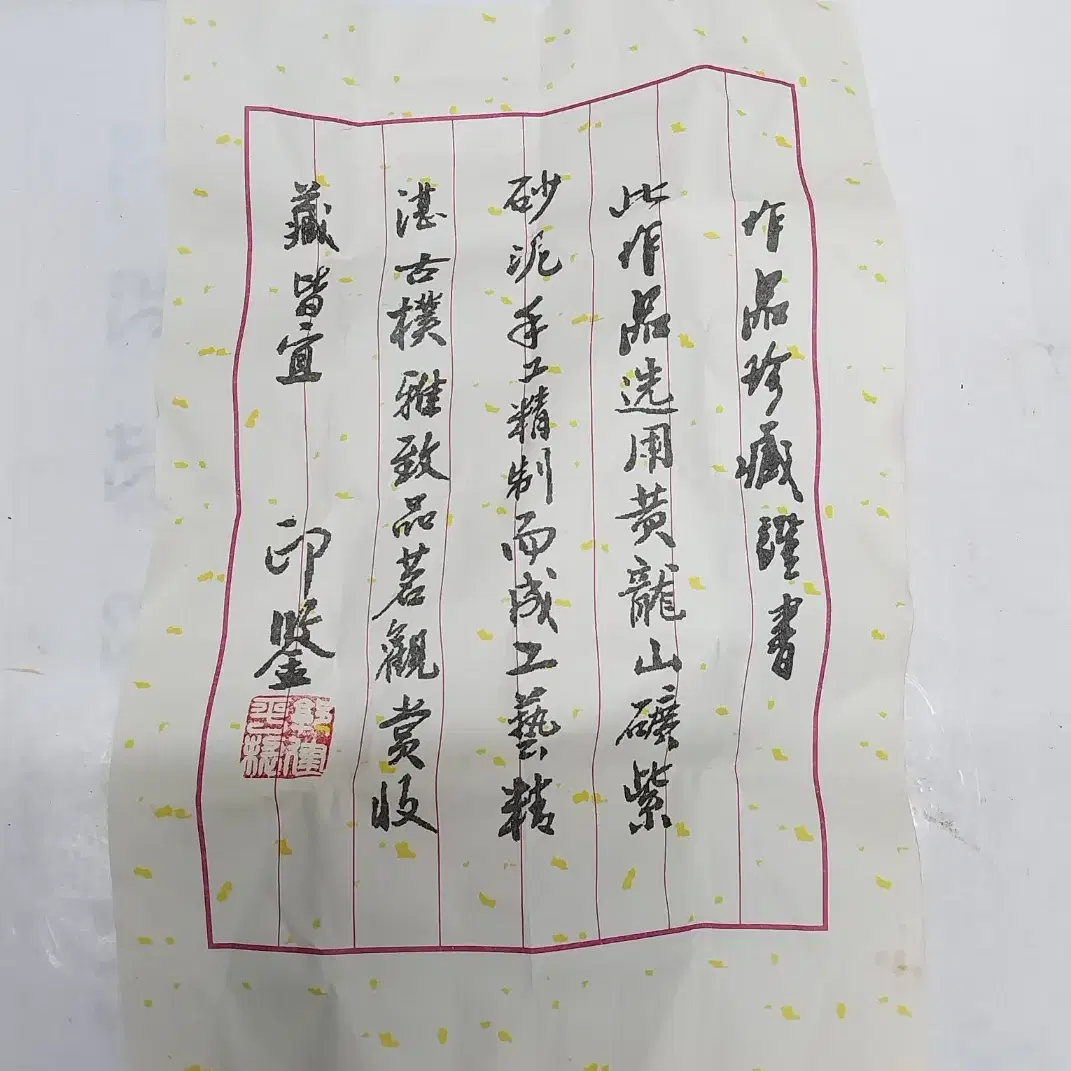 作品珍藏證書
此作品选用黄龍山礦紫
砂泥手工精制而成工藝精
湛古樸雅致品茗觀赏收
藏皆宜
印鉴